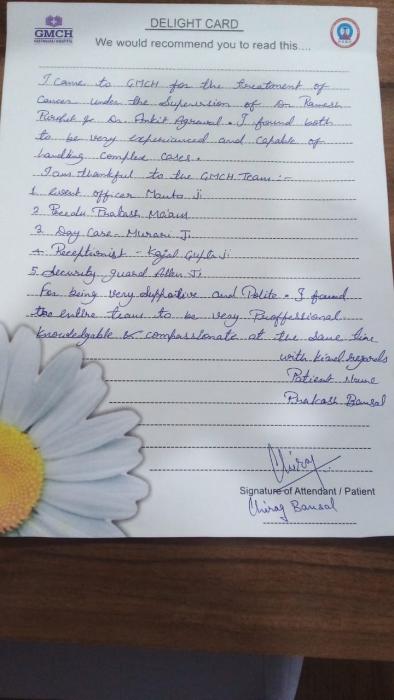 GMCH
DELIGHT CARD
We would recommend you to read this....
I came to GMCH for the treatment of
Cancer under the Supervision of Dr Ramesh
Purohit & Dr. Ankit Agrawal. I found both
to be very experienced and capable of
handling complex cases.
I am thankful to the GMCH Team :-
1. officer Mamta Ji
2. Thakash Ma'am
3. Day Care - Murari Ji
4. Receptionist - Kajal Gupta Ji
5. Security guard Ji
For being very supportive and Polite. I found
the entire team to be very Proffessional
knowledgable & compassionate at the same time
with kind regards
Patient Name
Prakash Bansal
Chirag
Signature of Attendant / Patient
Chirag Bansal